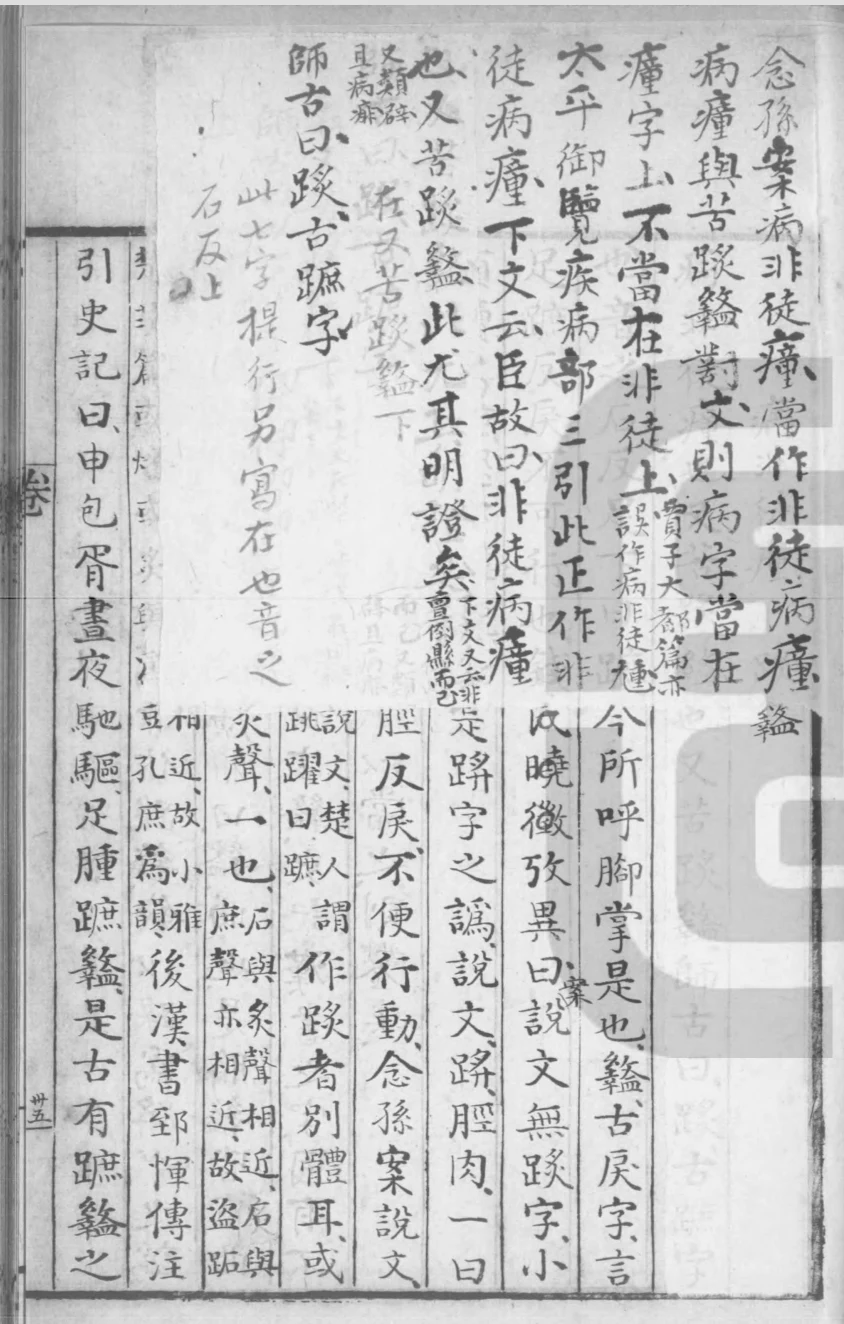 念孫案病非徒瘇當作非徒病瘇
病瘇與苦䟪盭對文則病字當在
瘇字上不當在非徒上賈子大都篇亦誤作病非徒瘇
太平御覽疾病部三引此正作非
徒病瘇下文云臣故曰非徒病瘇
也又苦䟪盭此尤其明證矣下文又云非亶倒縣而已
又類辟且病痱
在又苦䟪盭下
師古曰䟪古蹠字
此七字提行另寫在也音之
石反上
盭
今所呼腳掌是也盭古戾字言
曉徵攷異曰案說文無䟪字小
足䠊字之譌說文䠊脛肉一曰
脛反戾不便行動念孫案說文
說文楚人謂跳躍曰蹠作䟪者別體耳或
火聲一也石與炙聲相近石與庶聲亦相近故盜跖
相近故小雅豆孔庶爲韻後漢書郅惲傳注
引史記曰申包胥晝夜馳驅足腫蹠盭是古有蹠盭之
卷
卅五